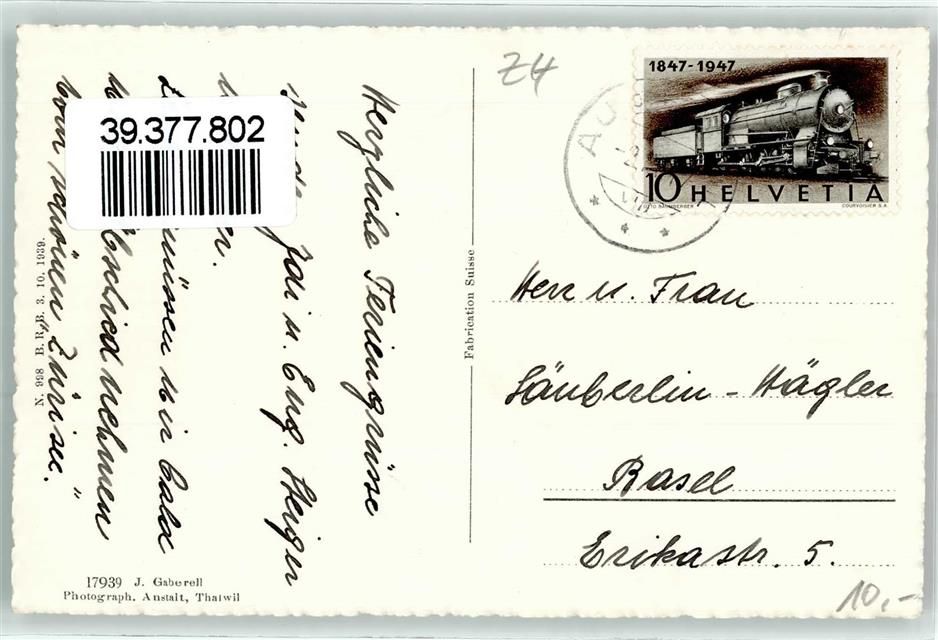 Herzliche Feriengrüsse
u. Eug. Heiger
müssen wir bald
Abschied nehmen
vom schönen "Zürisee."
39.377.802
N. 998 B.R.B. 3. 10. 1939.
17939 J. Gaberell
Photograph. Anstalt, Thalwil
Fabrication Suisse
Z4
1847-1947
10 HELVETIA
OTTO BAUMBERGER COURVOISIER S.A.
AU
Herr u. Frau
Säuberlin - Hägler
Basel
Erikastr. 5.
10,-